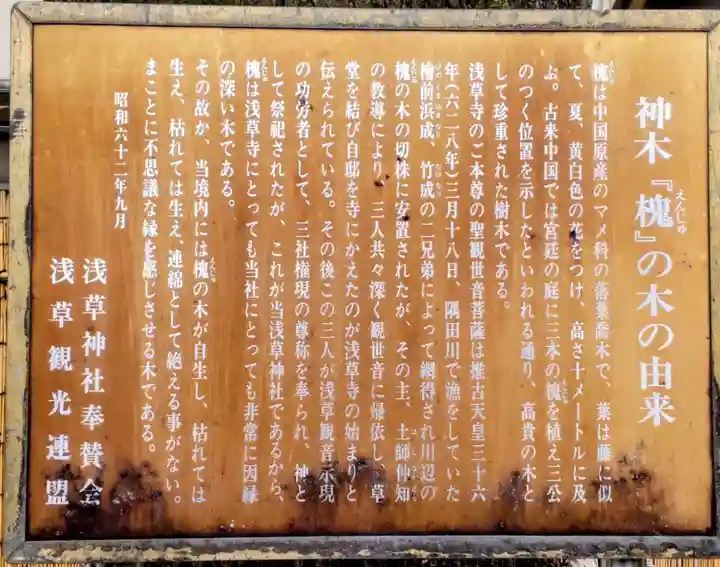 神木『槐』の木の由来
えんじゅ
槐は中国原産のマメ科の落葉喬木で、葉は藤に似
えんじゅ
て、夏、黄白色の花をつけ、高さ十メートルに及
ぶ。古来中国では宮廷の庭に三本の槐を植え三公
えんじゅ
のつく位置を示したといわれる通り、高貴の木と
して珍重された樹木である。
浅草寺のご本尊の聖観世音菩薩は推古天皇三十六
年(六二八年)三月十八日、隅田川で漁をしていた
檜前浜成、竹成の二兄弟によって網得され川辺の
ひのくまはまなり たけなり
槐の木の切株に安置されたが、その主、土師仲知
えんじゅ
の教導により、三人共々深く観世音に帰依し、草
堂を結び自邸を寺にかえたのが浅草寺の始まりと
伝えられている。その後この三人が浅草観音示現
の功労者として、三社権現の尊称を奉られ、神と
して祭祀されたが、これが当浅草神社であるから、
槐は浅草寺にとっても当社にとっても非常に因縁
えんじゅ
の深い木である。
その故か、当境内には槐の木が自生し、枯れては
生え、枯れては生え、連綿として絶える事がない。
まことに不思議な縁を感じさせる木である。
昭和六十二年九月
浅草神社奉賛会
浅草観光連盟